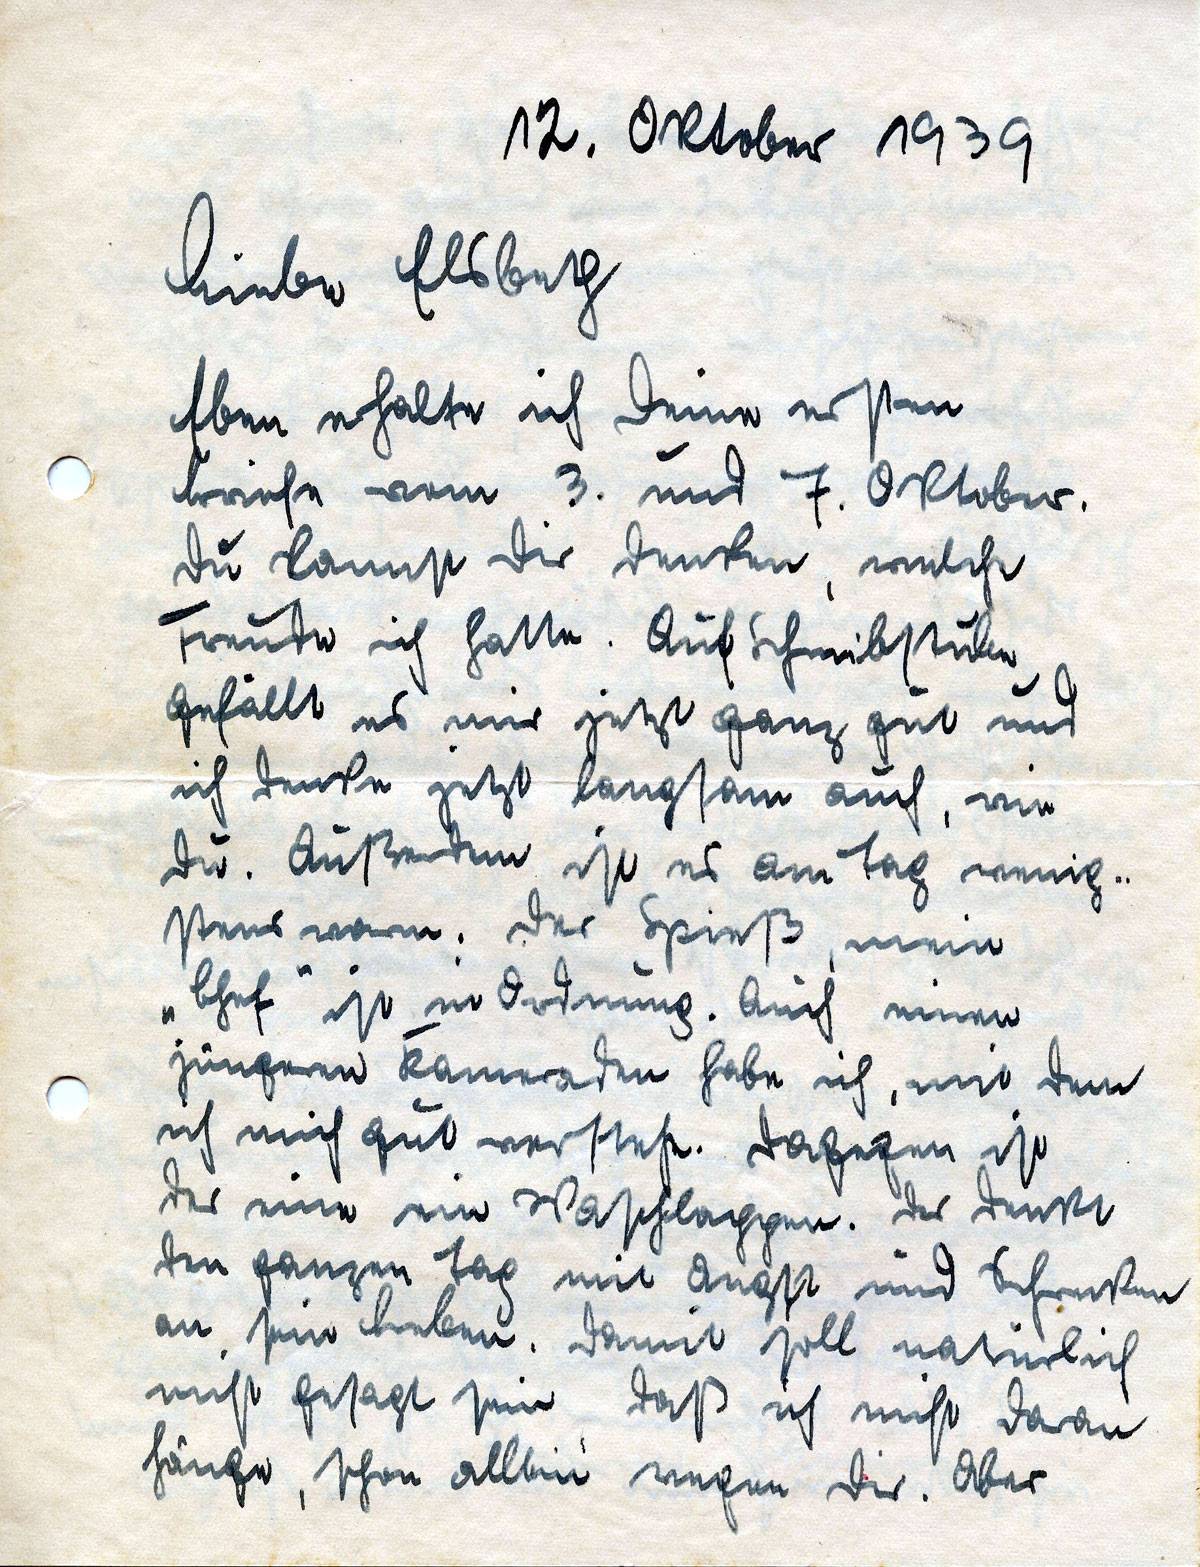 12. Oktober 1939
Liebe Elsbeth
Eben erhalte ich Deine ersten
Briefe vom 3. und 7. Oktober.
Du kannst Dir denken, welche
Freude ich hatte. Auf Schreibstube
gefällt es mir jetzt ganz gut und
ich denke jetzt langsam auch, wie
Du. Außerdem ist es am Tag wenig-
stens warm. Der Spieß, mein
„Chef" ist in Ordnung. Auch einen
jüngeren Kameraden habe ich, mit dem
ich mich gut verstehe. Dagegen ist
der eine ein Waschlappen. Der denkt
den ganzen Tag mit Angst und Schrecken
an sein Leben. Damit soll natürlich
nicht gesagt sein daß ich nicht daran
hänge, schon allein wegen Dir. Aber